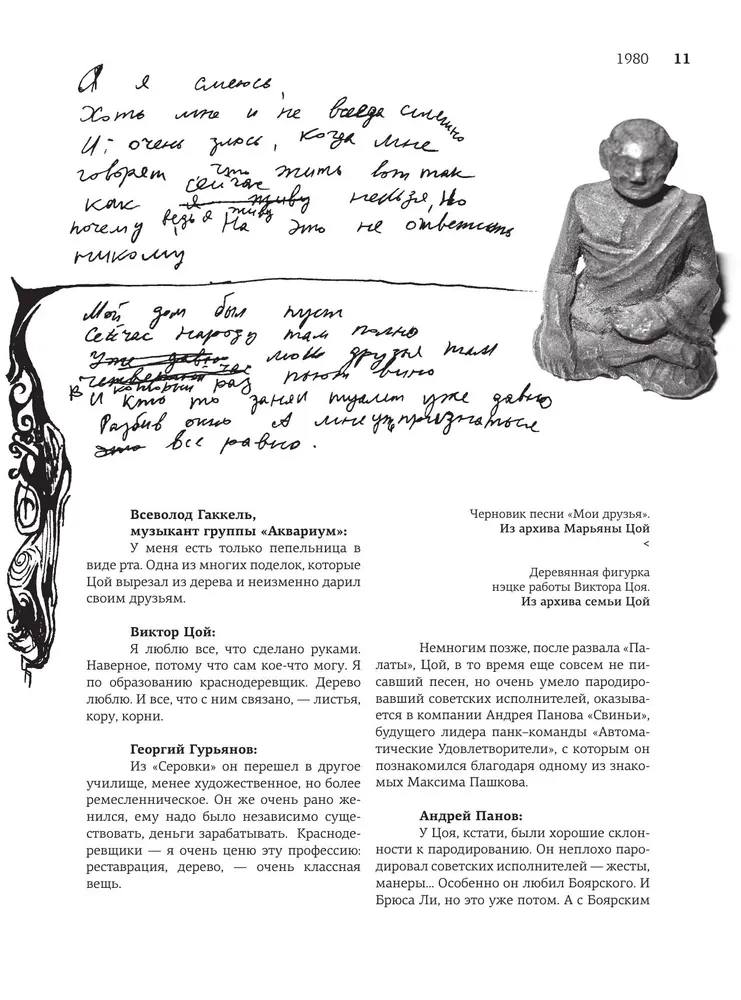 1980 11
А я смеюсь,
Хоть мне и не всегда смешно
И очень злюсь, когда мне
говорят, что жить вот так
сейчас
как я живу нельзя, Но
почему, ведь я живу, На это не ответить
никому
Мой дом был пуст
Сейчас народу там полно
Уже давно мои друзья там
четвертый час
В который раз пьют вино
И кто то занял туалет уже давно
Разбив окно А мне признаться
это все равно.
Всеволод Гаккель,
музыкант группы «Аквариум»:
У меня есть только пепельница в
виде рта. Одна из многих поделок, которые
Цой вырезал из дерева и неизменно дарил
своим друзьям.
Виктор Цой:
Я люблю все, что сделано руками.
Наверное, потому что сам кое-что могу. Я
по образованию краснодеревщик. Дерево
люблю. И все, что с ним связано, — листья,
кору, корни.
Георгий Гурьянов:
Из «Серовки» он перешел в другое
училище, менее художественное, но более
ремесленническое. Он же очень рано же-
нился, ему надо было независимо суще-
ствовать, деньги зарабатывать. Красноде-
ревщики — я очень ценю эту профессию:
реставрация, дерево, — очень классная
вещь.
Черновик песни «Мои друзья».
Из архива Марьяны Цой
<
Деревянная фигурка
нэцке работы Виктора Цоя.
Из архива семьи Цой
Немногим позже, после развала «Па-
латы», Цой, в то время еще совсем не пи-
савший песен, но очень умело пародиро-
вавший советских исполнителей, оказыва-
ется в компании Андрея Панова «Свиньи»,
будущего лидера панк–команды «Автома-
тические Удовлетворители», с которым он
познакомился благодаря одному из знако-
мых Максима Пашкова.
Андрей Панов:
У Цоя, кстати, были хорошие склон-
ности к пародированию. Он неплохо паро-
дировал советских исполнителей — жесты,
манеры... Особенно он любил Боярского. И
Брюса Ли, но это уже потом. А с Боярским